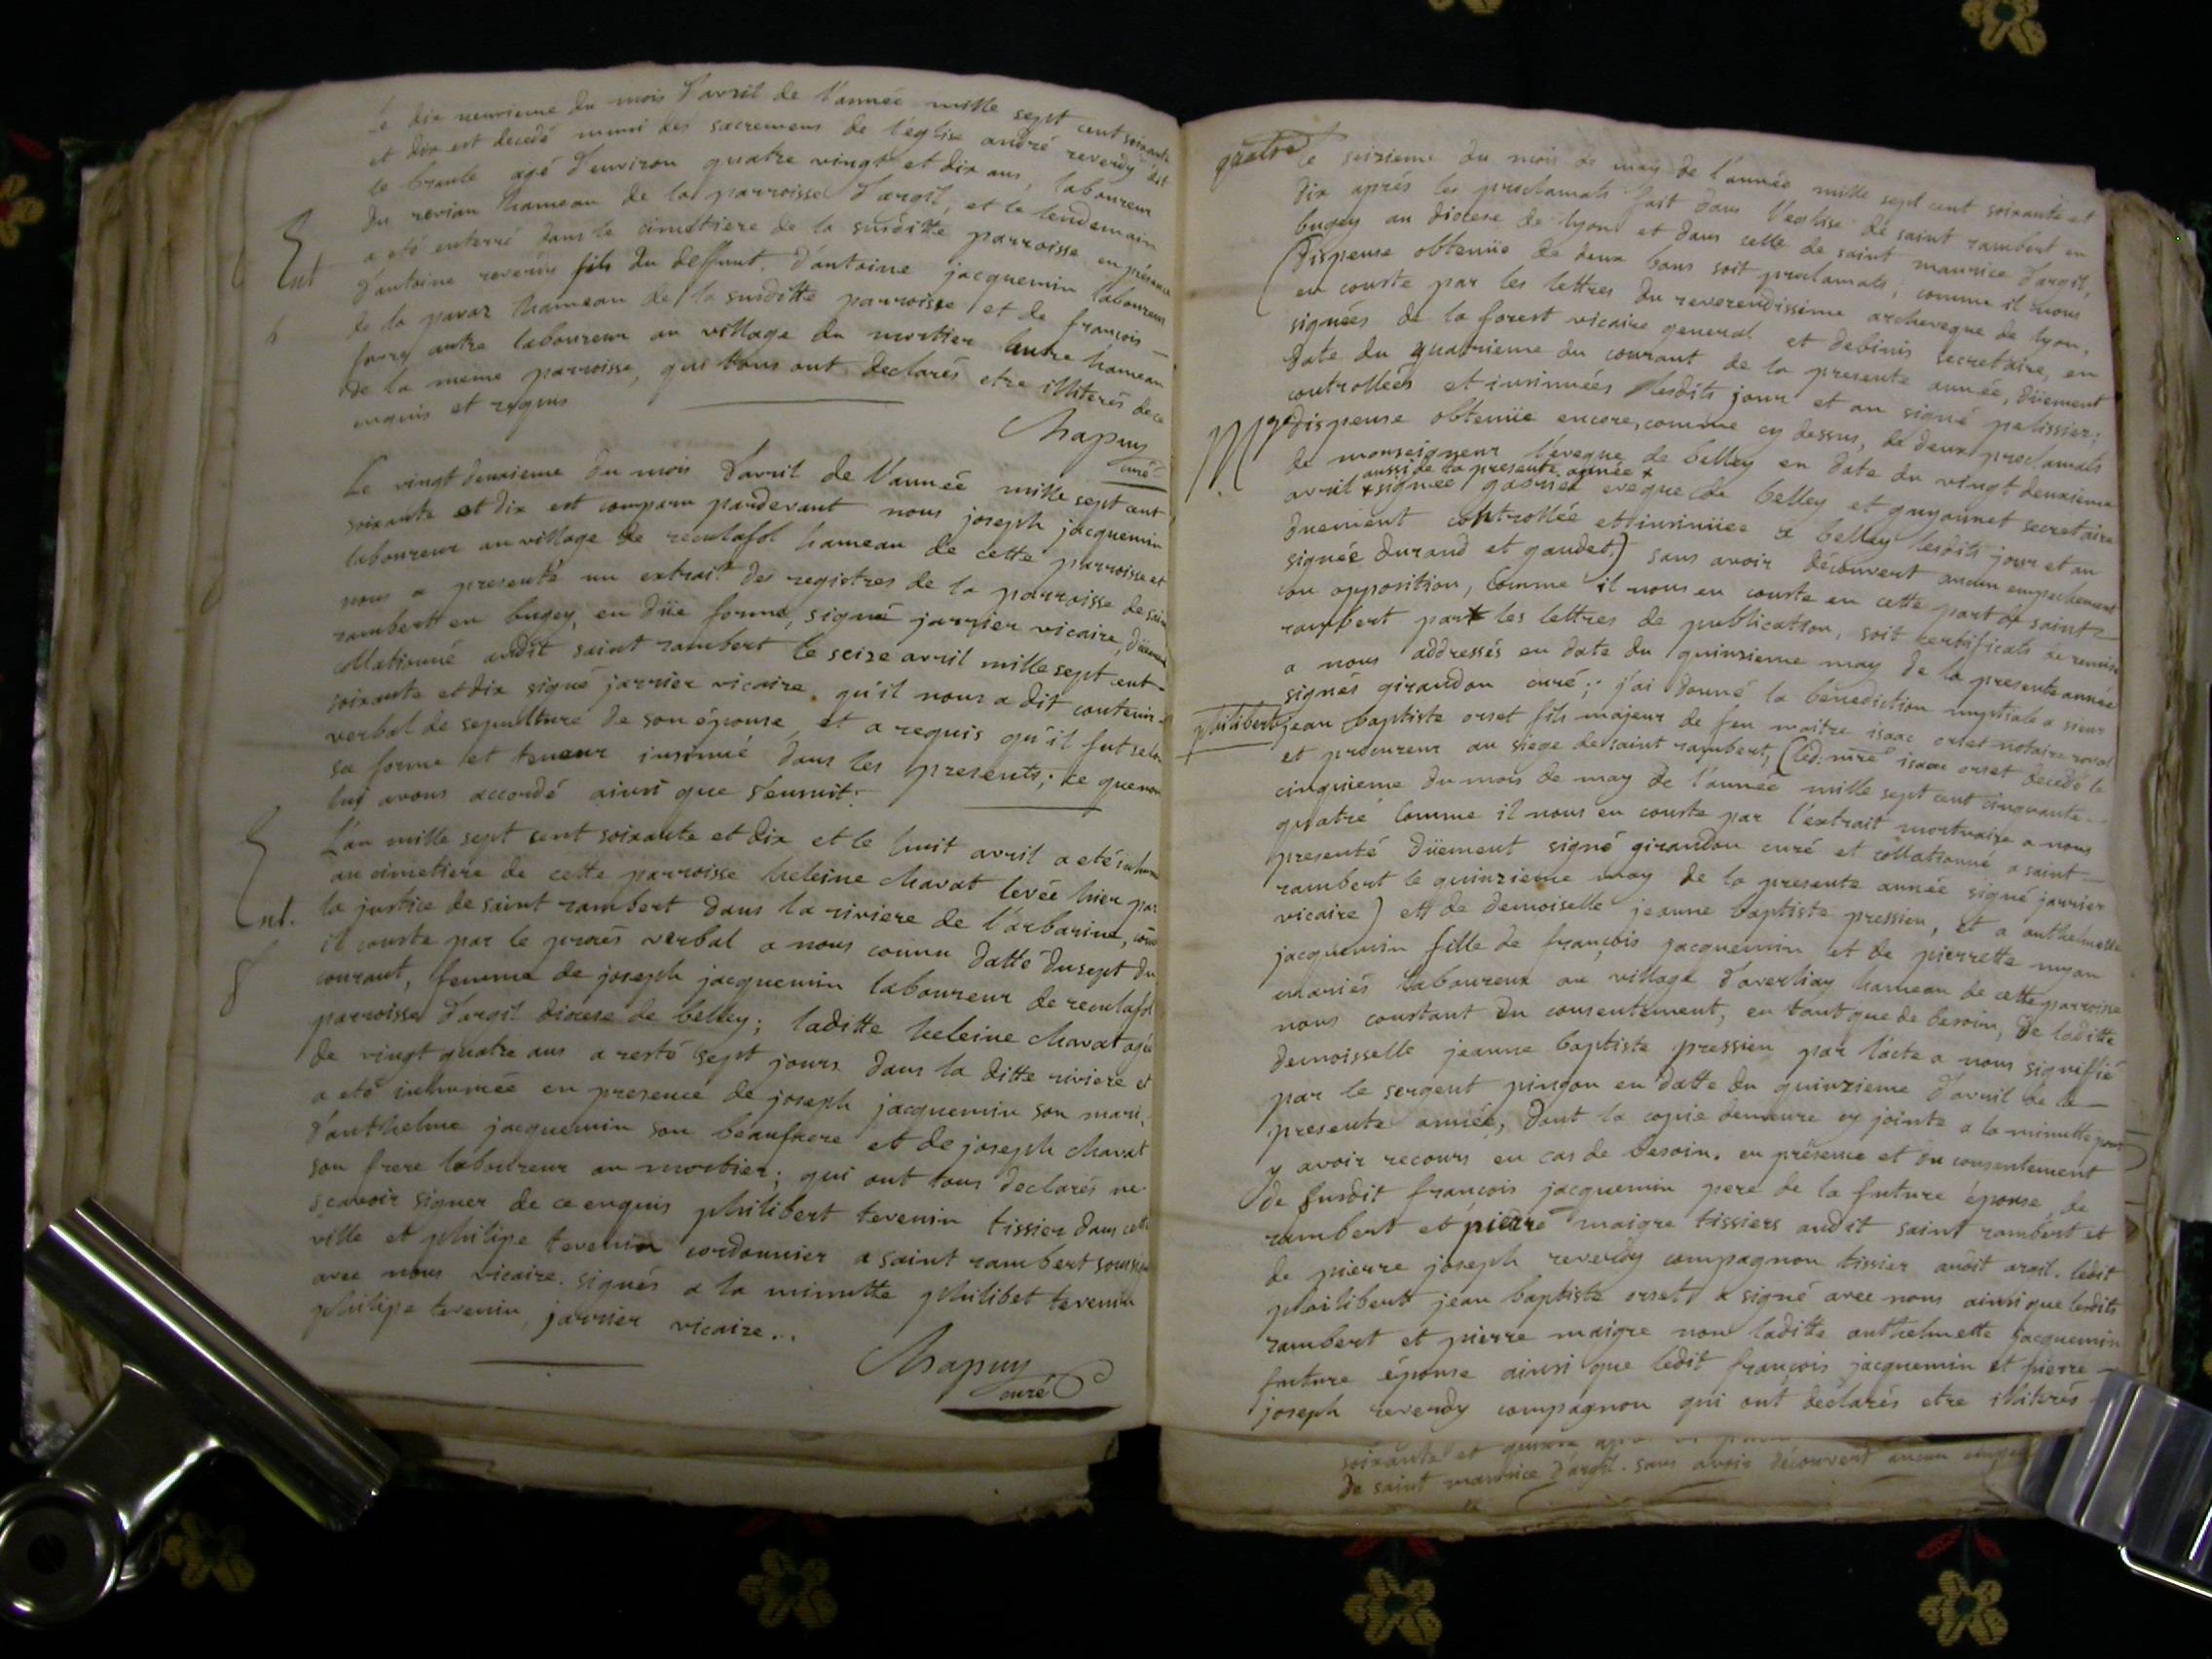 Le dix neuvieme du mois d'avril de l'année mille sept cent soixante
et dix est decedé muni des sacremens de l'église andré reverdy dit
le branle agé d'environ quatre vingt et dix ans, laboureur
du hameau de la parroisse d'argil, et le lendemain
a eté enterré dans le cimetiere de la susditte parroisse en présence
Ent
d'antoine reverdy fils du deffunt. d'antoine jacquemin laboureur
de la hameau de la susditte parroisse et de françois
6
autre laboureur au village du mortier autre hameau
de la meme parroisse, qui tous ont declarés etre illiterés de ce
enquis et requis
Chapuy
curé
Le vingt deuxieme du mois d'avril de l'année mille sept cent
soixante et dix est comparu pardevant nous joseph jacquemin
laboureur au village de reculafol hameau de cette parroisse et
nous a presenté un extrait des registres de la parroisse de saint
rambert en bugey, en düe forme, signé jarrier vicaire, düement
collationné audit saint rambert le seize avril mille sept cent
soixante et dix signé jarrier vicaire. qu'il nous a dit contenir
verbal de sepulture de son épouse, et a requis qu'il fut selon
sa forme et teneur insinué dans les presents; ce que nous
luy avons accordé ainsi que s'ensuit:
L'an mille sept cent soixante et dix et le huit avril a eté inhumé
au cimetiere de cette parroisse heleine chavat levée hier par
la justice de saint rambert dans la riviere de l'arbarine, come
Ent.
il conste par le procés verbal a nous connu datté du sept du
courant, femme de joseph jacquemin laboureur de reculafol
8
parroisse d'argil diocese de belley; laditte heleine chavat agée
de vingt quatre ans a resté sept jours dans la ditte riviere et
a eté inhumée en presence de joseph jacquemin son mari,
d'anthelme jacquemin son beaufrere et de joseph chavat
son frere laboureur au mortier; qui ont tous declarés ne
scavoir signer de ce enquis philibert tevenin tissier dans cette
ville et philipe tevenin cordonnier a saint rambert soussignés
avec nous vicaire. signés a la minutte philibet tevenin
philipe tevenin, jarrier vicaire...
Chapuy
curé
quatre
Le seizieme du mois de may de l'année mille sept cent soixante et
dix aprés les proclamats fait dans l'eglise de saint rambert en
bugey au diocese de lyon et dans celle de saint maurice d'argil,
(dispense obtenüe de deux bans soit proclamats, comme il nous
en conste par les lettres du reverendissime archeveque de lyon,
signées de la forest vicaire general et debinis secretaire, en
date du quatrieme du courant de la presente année, düement
controllées et insinuées lesdits jour et an signé pelissier;
Mge
dispense obtenüe encore, comme cy dessus, de deux proclamats
de monseigneur l'eveque de belley en date du vingt deuxieme
aussi de la presente année +
avril + signée gabriel eveque de belley et guyonnet secretaire
düement controllée et insinüee a belley lesdits jour et an
signée durand et gaudet.) sans avoir découvert aucun empechement
ou opposition, comme il nous en conste en cette part de saint
rambert par les lettres de publication, soit certificats de remise
a nous addressés en date du quinzieme may de la presente année
signés girandon curé; j'ai donné la benediction nuptiale a sieur
philibert
jean baptiste orset fils majeur de feu maitre isaac orset notaire royal
et procureur au siege de saint rambert, (led. mre isaac orset decedé le
cinquieme du mois de may de l'année mille sept cent cinquante
quatre comme il nous en conste par l'extrait mortuaire a nous
presenté düement signé girandon curé et collationné a saint
rambert le quinzieme may de la presente année signé jarrier
vicaire) et de demoiselle jeanne baptiste pression, et a anthelmette
jacquemin fille de françois jacquemin et de pierrette
mariés laboureux au village d'averliay hameau de cette parroisse
nous constant du consentement, en tant que de besoin, de laditte
demoisselle jeanne baptiste pression par l'acte a nous signifié
par le sergent pingon en datte du quinzieme d'avril de la
presente année, dont la copie demeure cy jointe a la minutte pour
y avoir recours en cas de besoin. en présence et du consentement
de susdit françois jacquemin pere de la future épouse, de
rambert et pierre maigre tissiers audit saint rambert et
de pierre joseph reverdy compagnon tissier audit argil. ledit
philibert jean baptiste orset a signé avec nous ainsi que lesdits
rambert et pierre maigre non laditte anthelmette jacquemin
future épouse ainsi que ledit françois jacquemin et pierre
joseph reverdy compagnon qui ont declarés etre illiterés
soixante et quinze
de saint maurice d'argil. sans avoir découvert aucun